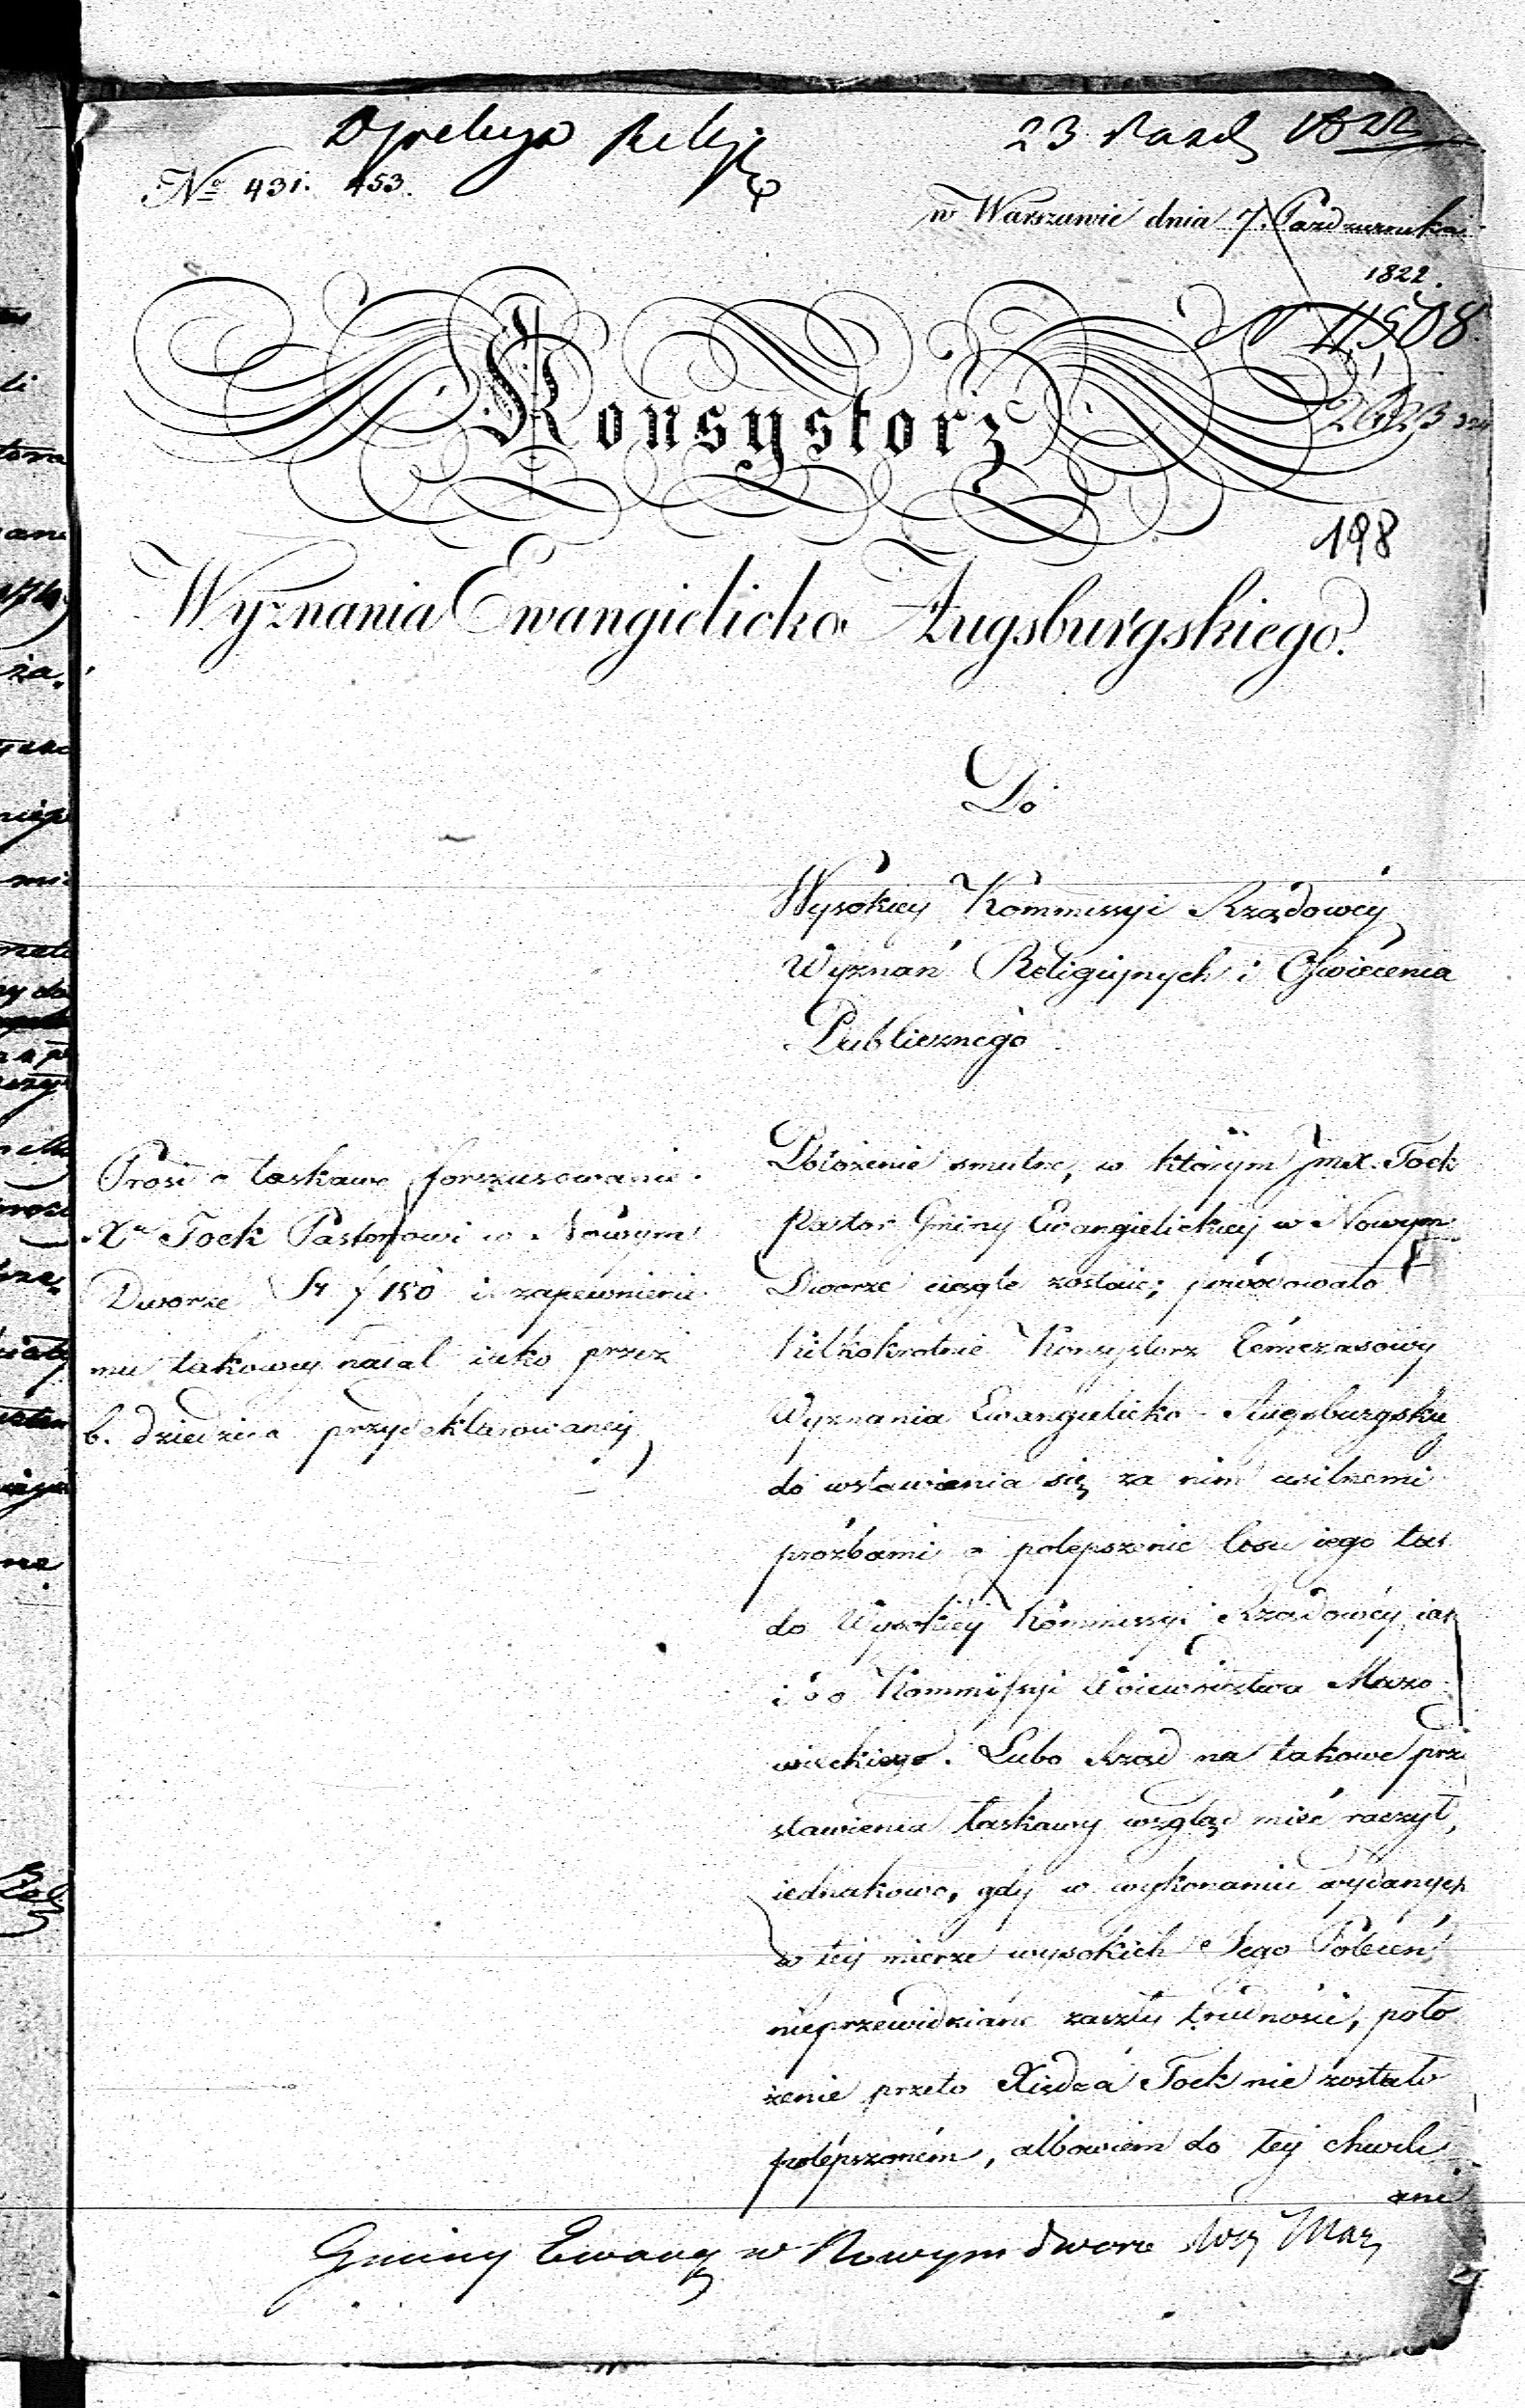 23 Paźd 1822
№ 431. 453.
w Warszawie dnia 7. Pazdziernika
1822.
N 11508
198
Konsystorz
Wyznania Ewangielicko Augsburgskiego.
Do
Wysokiey Kommissyi Rządowey
Wyznań Religiynych i Oświecenia
Publicznego
Prosi o łaskawe forszusowanie
Xu Tock Pastorowi w Nowym
Dworze 150 i zapewnienie
mu takowey nadal iako przez
b. dziedzica przydeklarowaney
Położenie smutne, w którym Jmx. Tock
Pastor Gminy Ewangielickiey w Nowym
Dworze ciągle zostaie; powodowało
kilkokrotnie Konsystorz témczasowy
Wyznania Ewangielicko-Augsburgskie
do wstawienia się za nim usilnemi
prozbami o polepszenie losu iego tak
do Wysokiéy Kommissyi Rządowéy, iak
i do Kommissyi Woiewodztwa Mazo
wieckiego. Lubo Rząd na takowe prze
stawienia łaskawy wzgląd mieć raczył,
iednakowo, gdy w wykonaniu wydanych
w tey mierze wysokich Jego Poleceń,
nieprzewidziane zaszły trudności, poło
żenie przeto Xiędza Tock nie zostało
polépszoném, albowiem do tey chwili
ani
Gminy Ewang w Nowym Dworze Woj Maz